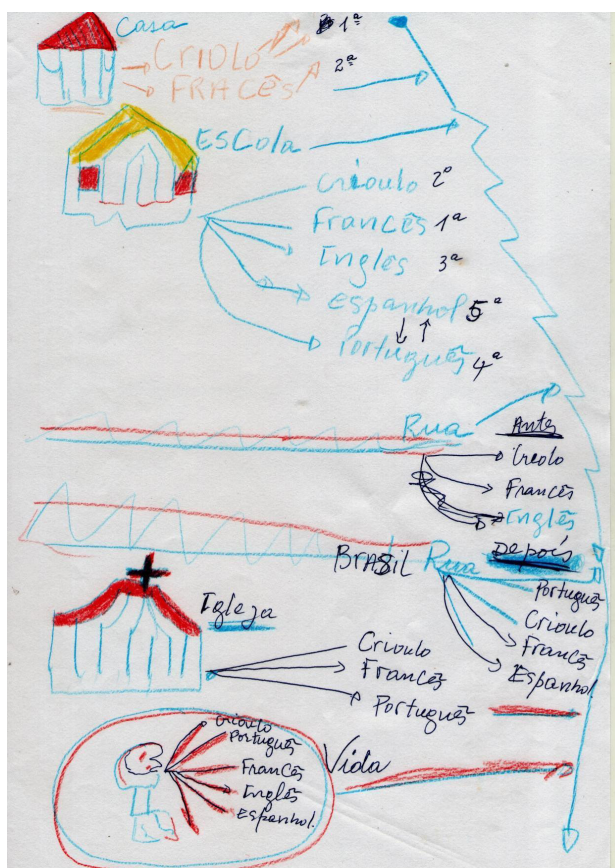 Casa
CRIOLO 1ª
FRACÊS 2ª
ESCola
Crioulo 2º
Francês 1ª
Inglês 3ª
Espanhol 5ª
Português 4ª
Rua Antes
Creolo
Francês
Inglês
Depois
BRASIL Rua
Português
Crioulo
Francês
Espanhol
Igleja
Crioulo
Francês
Português
Vida
Crioulo
Português
Francês
Inglês
Espanhol.